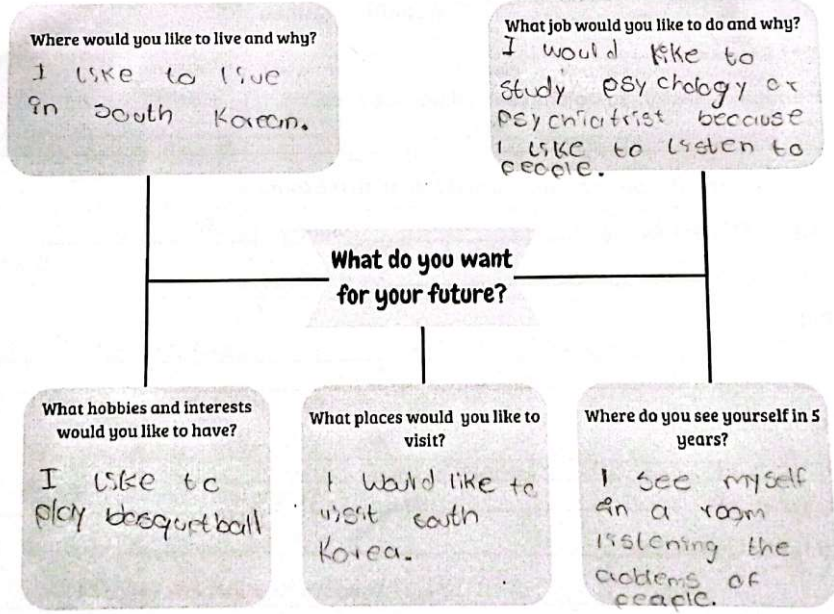 Where would you like to live and why?
I like to live
in south Korean.
What job would you like to do and why?
I would like to
study psychology or
psychiatrist because
I like to listen to
people.
What do you want
for your future?
What hobbies and interests
would you like to have?
I like to
play basquetball
What places would you like to
visit?
I would like to
visit south
Korea.
Where do you see yourself in 5
years?
I see myself
in a room
listening the
problems of
people.